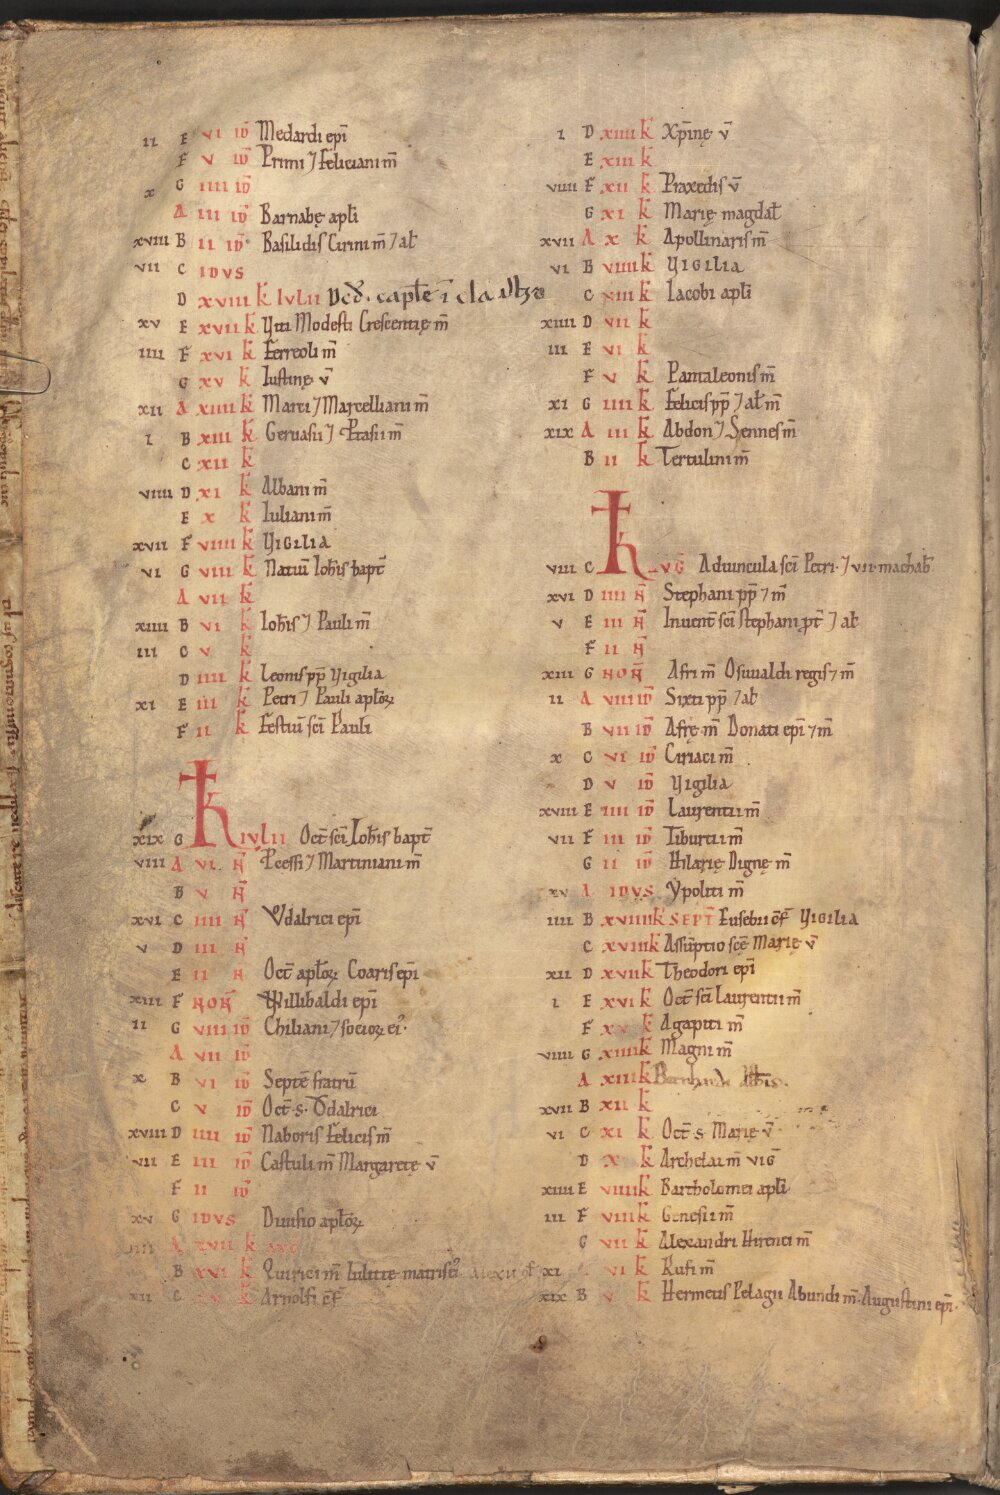 ii E vi iđ Medardi epī
F v iđ Primi ⁊ Feliciani m̄
x G iiii iđ
A iii iđ Barnabę apłi
xviii B ii iđ Basilidis Cirini m̄ ⁊ ał
vii C idvs
D xviii k Ivlii
xv E xvii k Viti Modesti Crescentię m̄
iiii F xvi k Ferreoli m̄
G xv k Iustinę v̄
xii A xiiii k Marci ⁊ Marcelliani m̄
i B xiii k Geruasii ⁊ Ptasii m̄
C xii k
viiii D xi k Albani m̄
E x k Iuliani m̄
xvii F viiii k Vigilia
vi G viii k Natiu̅ Ioh̄is bapt̄
A vii k
xiiii B vi k Ioh̄is ⁊ Pauli m̄
iii C v k
D iiii k Leonis pp̄ Vigilia
xi E iii k Petri ⁊ Pauli apłoꝝ
F ii k Festiu̅ sc̄i Pauli
xix G K ivlii Oct̄ sc̄i Ioh̄is bapt̄
viii A vi N̄ Pcessi ⁊ Martiniani m̄
B v N̄
xvi C iiii N̄ Vdalrici epī
v D iii N̄
E ii N̄ Oct̄ apłoꝝ Goaris epī
xiii F NON̄ Willibaldi epī
ii G viii iđ Chiliani ⁊ socioꝝ ei᾽
A vii iđ
x B vi iđ Septē fratru̅
C v iđ Oct̄ s. Vdalrici
xviii D iiii iđ Naboris Felicis m̄
vii E iii iđ Castuli m̄ Margaretę v̄
F ii iđ
xv G idvs Diuisio apłoꝝ
iiii A xvii k avg̅
B xvi k Quirici m̄ Iulittę matris ei᾽ Alexii cf̄
xii C xv k Arnolfi cf̄
i D xiiii k Xp̄inę v̄
E xiii k
viiii F xii k Praxedis v̄
G xi k Marię magdał
xvii A x k Apollinaris m̄
vi B viiii k Vigilia
C viii k Iacobi apłi
xiiii D vii k
iii E vi k
F v k Pantaleonis m̄
xi G iiii k Felicis pp̄ ⁊ ał m̄
xix A iii k Abdon ⁊ Sennes m̄
B ii k Tertulini m̄
viii C K avg̅ Ad uincula sc̄i Petri. ⁊ vii. machab̄
xvi D iiii N̄ Stephani pp̄ ⁊ m̄
v E iii N̄ Inuent̄ sc̄i Stephani pt̄ ⁊ ał
F ii N̄
xiii G NON̄ Afri m̄ Osuualdi regis ⁊ m̄
ii A viii iđ Sixti pp̄ ⁊ ał
B vii iđ Afrę m̄ Donati epī ⁊ m̄
x C vi iđ Ciriaci m̄
D v iđ Vigilia
xviii E iiii iđ Laurentii m̄
vii F iii iđ Tiburtii m̄
G ii iđ Hilarię Dignę m̄
xv A idvs Ypoliti m̄
iiii B xviiii k sept̄ Eusebii cf̄ Vigilia
C xviii k Assu̅ptio scę̄ Marię v̄
xii D xvii k Theodori epī
i E xvi k Oct̄ sc̄i Laurentii m̄
F xv k Agapiti m̄
viiii G xiiii k Magni m̄
A xiii k Bernhardi abbis.
xvii B xii k
vi C xi k Oct̄ s. Marię v̄
D x k Archelai m̄ vig̅
xiiii E viiii k Bartholomei apłi
iii F viii k Genesii m̄
G vii k Alexandri Hirenei m̄
xi vi k Rufi m̄
xix B v k Hermetis Pelagii Abundi m̄. Augustini epī.